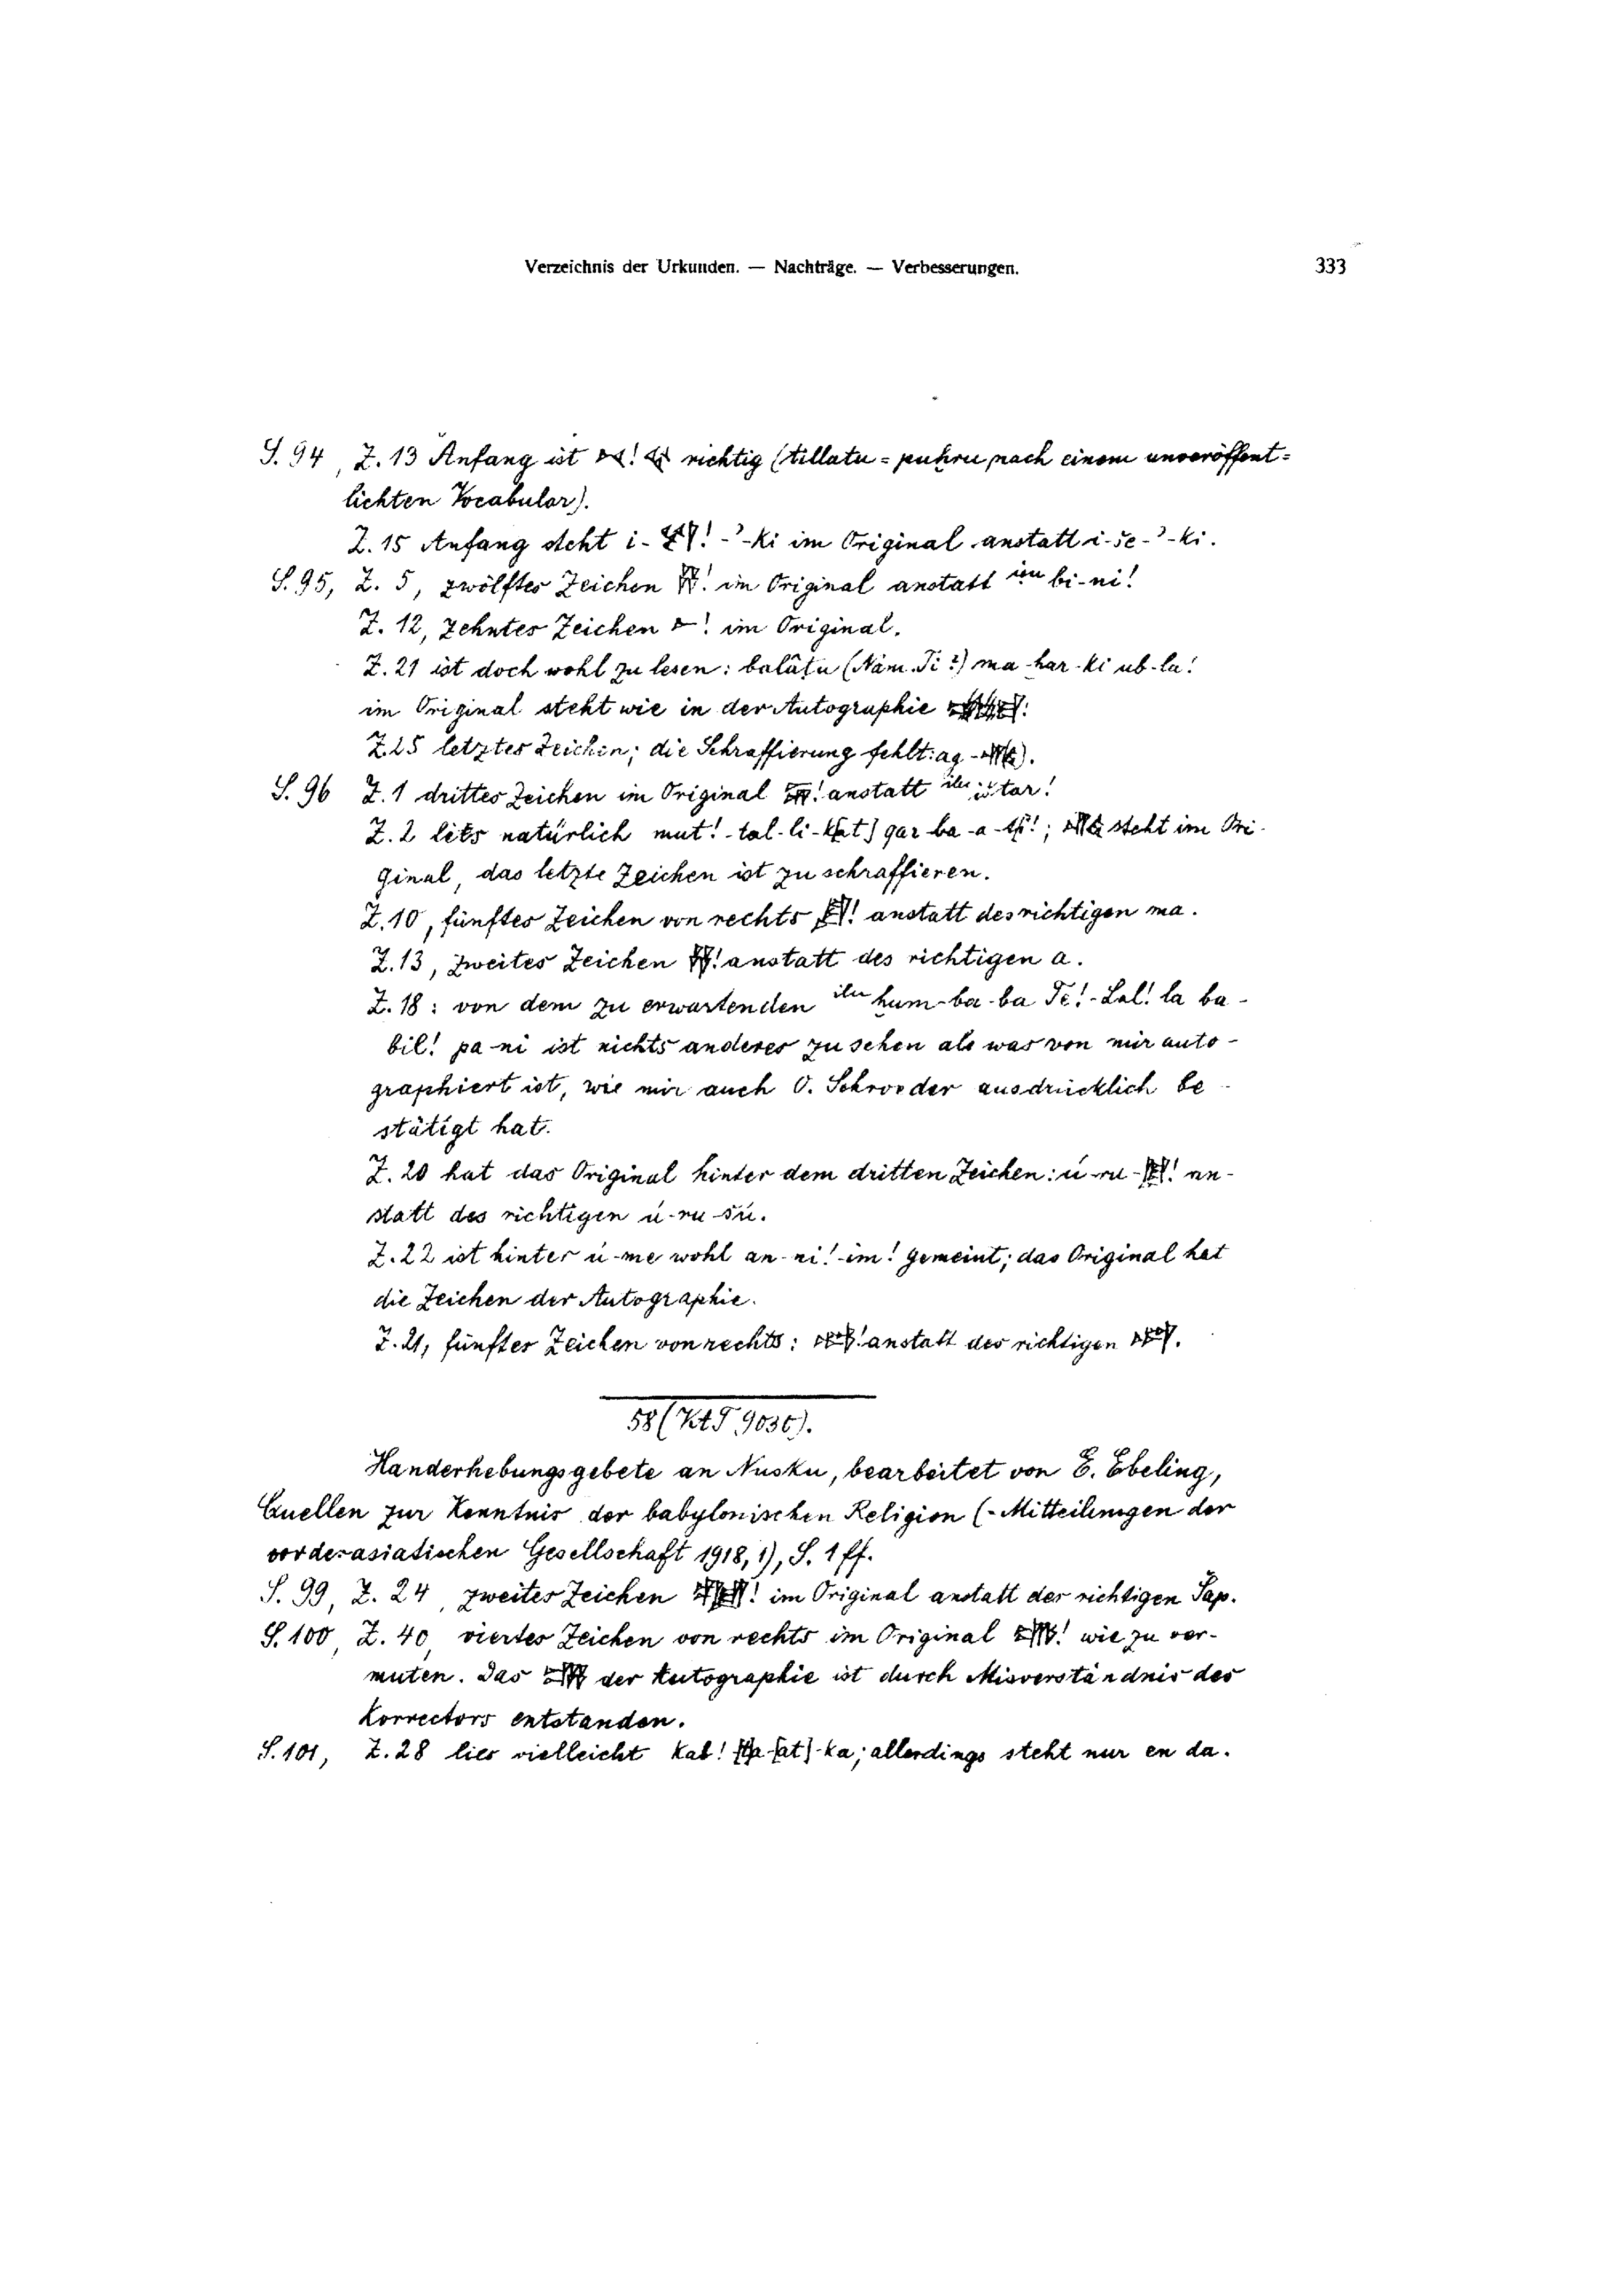 Verzeichnis der Urkunden. — Nachträge. — Verbesserungen. 333
S. 94, Z. 13 Anfang ist ! richtig (tillatu = puḫru nach einem unveröffent=
lichten Vocabular).
Z. 15 Anfang steht i- ! -ʾ-ki im Original anstatt i-še-ʾ-ki.
S. 95, Z. 5, zwölftes Zeichen ! im Original anstatt bi-ni!
Z. 12, zehntes Zeichen ! im Original.
Z. 21 ist doch wohl zu lesen: balâṭu (Nam. Ti?) ma-ḫar-ki ub-la!
im Original steht wie in der Autographie !
Z. 25 letztes Zeichen; die Schraffierung fehlt: ag-
S. 96 Z. 1 drittes Zeichen im Original ! anstatt ilu ištar!
Z. 2 lies natürlich mut!-tal-li-k[at] gar-ba-a- ! ; steht im Ori-
ginal, das letzte Zeichen ist zu schraffieren.
Z. 10, fünftes Zeichen von rechts ! anstatt des richtigen ma.
Z. 13, zweites Zeichen ! anstatt des richtigen a.
Z. 18: von dem zu erwartenden ilu ḫum-ba-ba Te!-Lal! la ba-
bil! pa-ni ist nichts anderes zu sehen als was von mir auto-
graphiert ist, wie mir auch O. Schroeder ausdrücklich be-
stätigt hat.
Z. 20 hat das Original hinter dem dritten Zeichen: ú-ru- ! an-
statt des richtigen ú-ru-šú.
Z. 22 ist hinter ú-me wohl an-ni!-im! gemeint; das Original hat
die Zeichen der Autographie.
Z. 21, fünftes Zeichen von rechts: ! anstatt des richtigen .
58 (VAT 9030).
Handerhebungsgebete an Nusku, bearbeitet von E. Ebeling,
Quellen zur Kenntnis der babylonischen Religion (= Mitteilungen der
vorderasiatischen Gesellschaft 1918, 1), S. 1 ff.
S. 99, Z. 24, zweites Zeichen ! im Original anstatt der richtigen Šap.
S. 100, Z. 40, viertes Zeichen von rechts im Original ! wie zu ver-
muten. Das der Autographie ist durch Misverständnis des
Korrectors entstanden.
S. 101, Z. 28 lies vielleicht kab! -[at]-ka; allerdings steht nur en da.